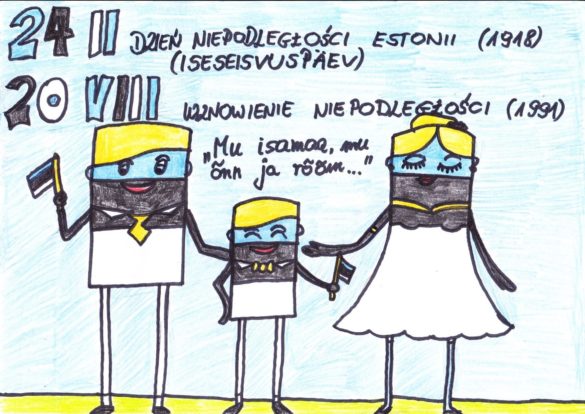 24 II DZIEŃ NIEPODLEGŁOŚCI ESTONII (1918)
(ISESEISVUSPÄEV)
20 VIII WZNOWIENIE NIEPODLEGŁOŚCI (1991)
„Mu isamaa, mu
õnn ja rõõm..."